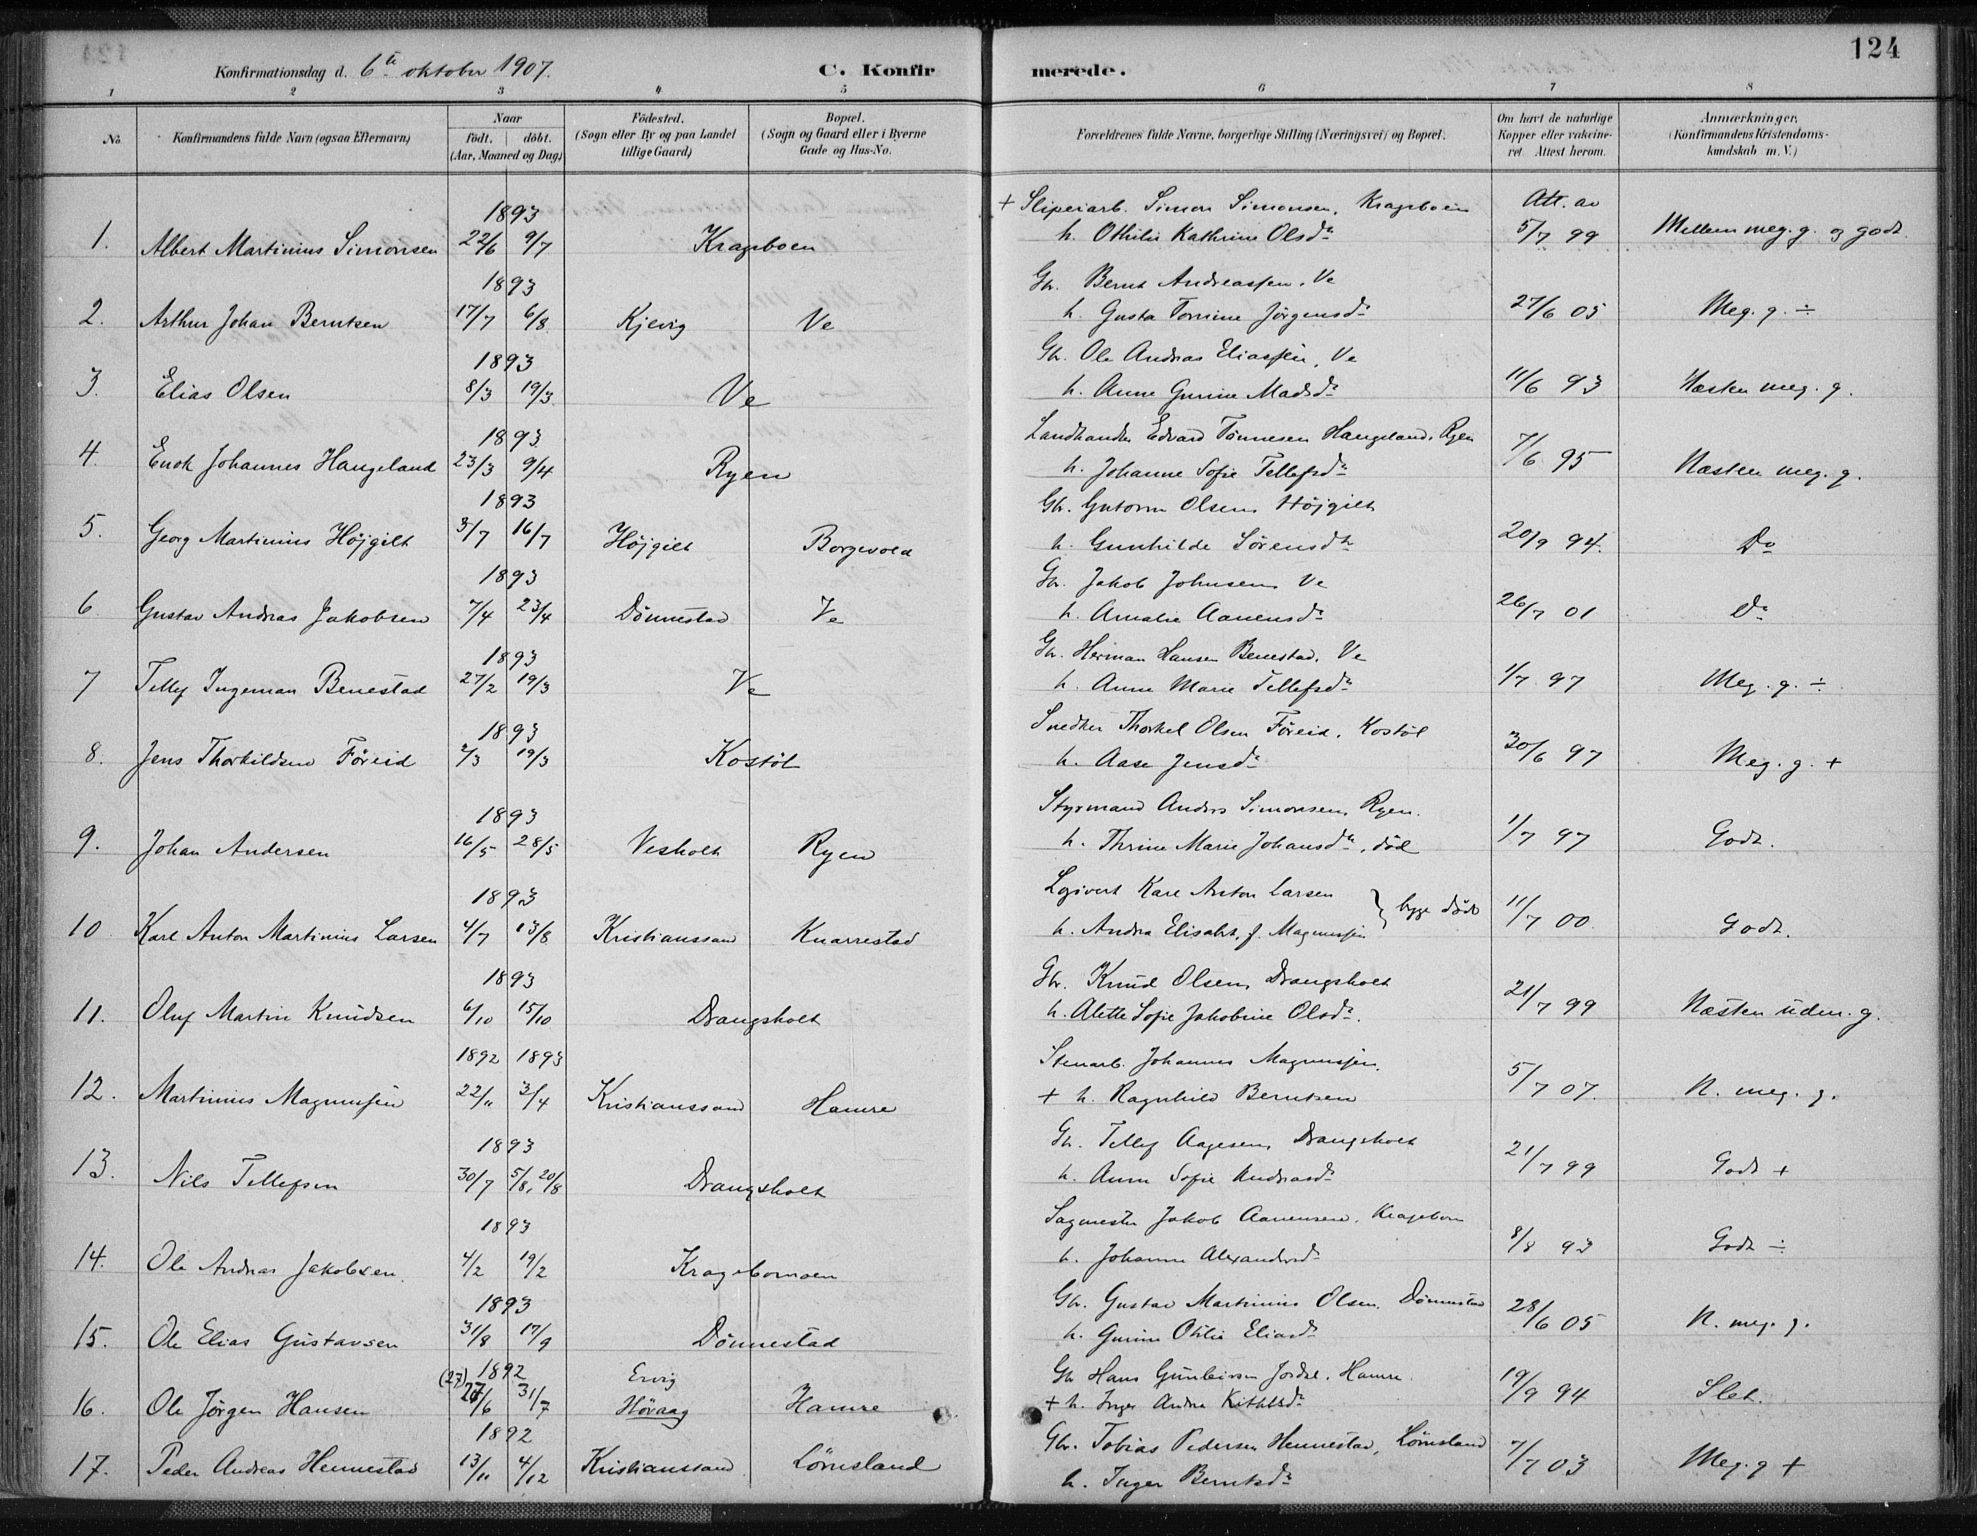 124
Konfirmationsdag d. 6te oktober 1907.
C. Konfirmerede.
1 2 3 4 5 6 7 8
No. Konfirmandens fulde Navn (ogsaa Efternavn) Naar födt. döbt. (Aar, Maaned og Dag) Födested. (Sogn eller By og paa Landet tillige Gaard) Bopæl. (Sogn og Gaard eller i Byerne Gade og Hus-No. Forældrenes fulde Navne, borgerlige Stilling (Næringsvei) og Bopæl. Om havt de naturlige Kopper eller vaccineret. Attest herom. Anmærkninger, (Konfirmandens Kristendomskundskab m. V.)
1893 + Sliperiarb. Simon Simonsen, Krageboen Att. av
1. Albert Martinius Simonsen 22/6 9/7 Krageboen h. Othilie Kathrine Olsdr 5/7 99 Mellem meg. g. og godt
1893 Gbr. Bernt Andreassen, Ve
2. Arthur Johan Berntsen 17/7 6/8 Kjevig Ve h. Gusta Tomine Jörgensdr 27/6 05 Meg. g. ÷
1893 Gbr. Ole Andreas Eliassen, Ve
3. Elias Olsen 8/3 19/3 Ve h. Anne Gurine Madsdr 11/6 93 Næsten meg. g.
1893 Landhandler Edvard Tönnesen Haugeland, Ryen
4. Enok Johannes Haugeland 23/3 9/4 Ryen h. Johanne Sofie Tellefsdr 7/6 95 Næsten meg. g.
1893 Gbr. Gutorm Olsen Höjgilt
5. Georg Martinius Höjgilt 3/7 16/7 Höjgilt Borgevold h. Gunhilde Sörensdtr 20/9 94. Do
1893 Gbr. Jakob Johnsen Ve
6. Gustav Andreas Jakobsen 7/4 23/4 Dönnestad Ve h. Amalie Aanensdr 26/7 01 Do
1893 Gbr. Herman Hansen Benestad, Ve
7 Tellef Ingeman Benestad 27/2 19/3 Ve h. Anne Marie Tellefsdr 1/7 97 Meg. g. ÷
1893 Snedker Thorkel Olsen Föreid, Kostöl
8. Jens Thorkildsen Föreid 2/3 19/3 Kostöl h. Aase Jensdr 30/6 97 Meg. g. +
1893 Styrmand Anders Simonsen, Ryen.
9. Johan Andersen 16/5 28/5 Vesholt Ryen h. Thrine Marie Johansdr, död 1/7 97 Godt.
1893 Karl Anton Larsen
10 Karl Anton Martinius Larsen 4/7 13/8 Kristianssand Knarrestad h. Andrea Elisabet, f. Magnussen } begge döde 11/7 00 Godt.
1893 Gbr. Knud Olsen, Drangsholt
11. Oluf Martin Knudsen 6/10 15/10 Drangsholt h. Alette Sofie Jakobine Olsdr. 21/7 99 Næsten udm. g.
1892 1893 Stenarb. Johannes Magnussen.
12. Martinius Magnussen 22/11 3/4 Kristianssand Hamre + h. Ragnhild Berntsen 5/7 07. N. meg. g.
1893 Gbr. Tellef Aagesen, Drangsholt
13. Nils Tellefsen 30/7 5/8, 20/8 Drangsholt h. Anne Sofie Andreasdr 21/7 99 Godt +
1893 Sagmester Jakob Aanensen, Krageboen
14. Ole Andreas Jakobsen. 4/2 19/2 Kragebomoen h. Johanne Alexandersdr 8/8 93 Godt ÷
1893 Gbr. Gustav Martinius Olsen, Dönnestad
15. Ole Elias Gustavsen 31/8 17/9 Dönnestad h. Gurine Otilie Eliasdr 28/6 05 N. meg. g.
(27) 1892 Ervig Gbr Hans Gunleivsen Jordal, Hamre.
16. Ole Jörgen Hansen 27/6 31/7 Hövaag Hamre + h. Inger Andrea Kittelsdr 19/9 94 Slet.
1892 Gbr. Tobias Pedersen Hennestad, Lömsland
17. Peder Andreas Hennestad 13/11 4/12 Kristianssand Lömsland h. Inger Berntsdr 7/7 03 Meg. g +